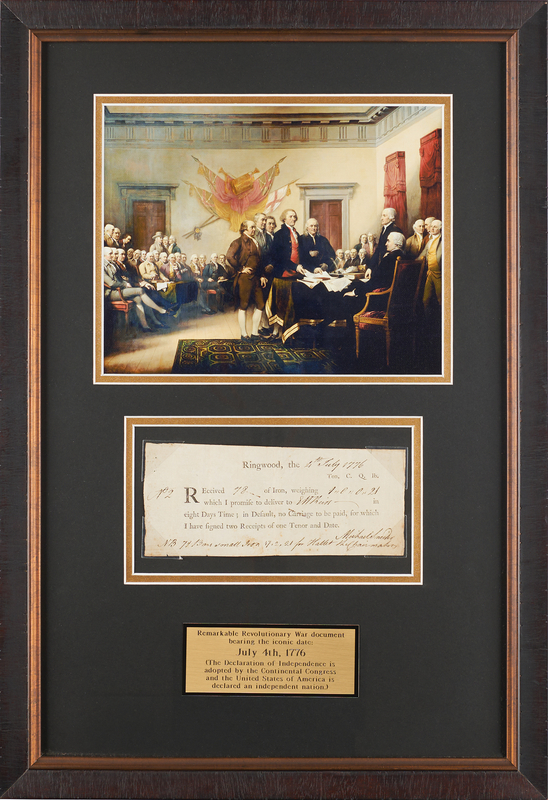 Ringwood, the 4th July 1776
Ton, C. Q. lb.
No 2 REceived 78 of Iron, weighing 1-0-0-21
which I promise to deliver to in
eight Days Time; in Default, no Carriage to be paid, for which
I have signed two Receipts of one Tenor and Date.
NB 78 Bars small Iron for
Remarkable Revolutionary War document
bearing the iconic date:
July 4th, 1776
(The Declaration of Independence is
adopted by the Continental Congress
and the United States of America is
declared an independent nation.)